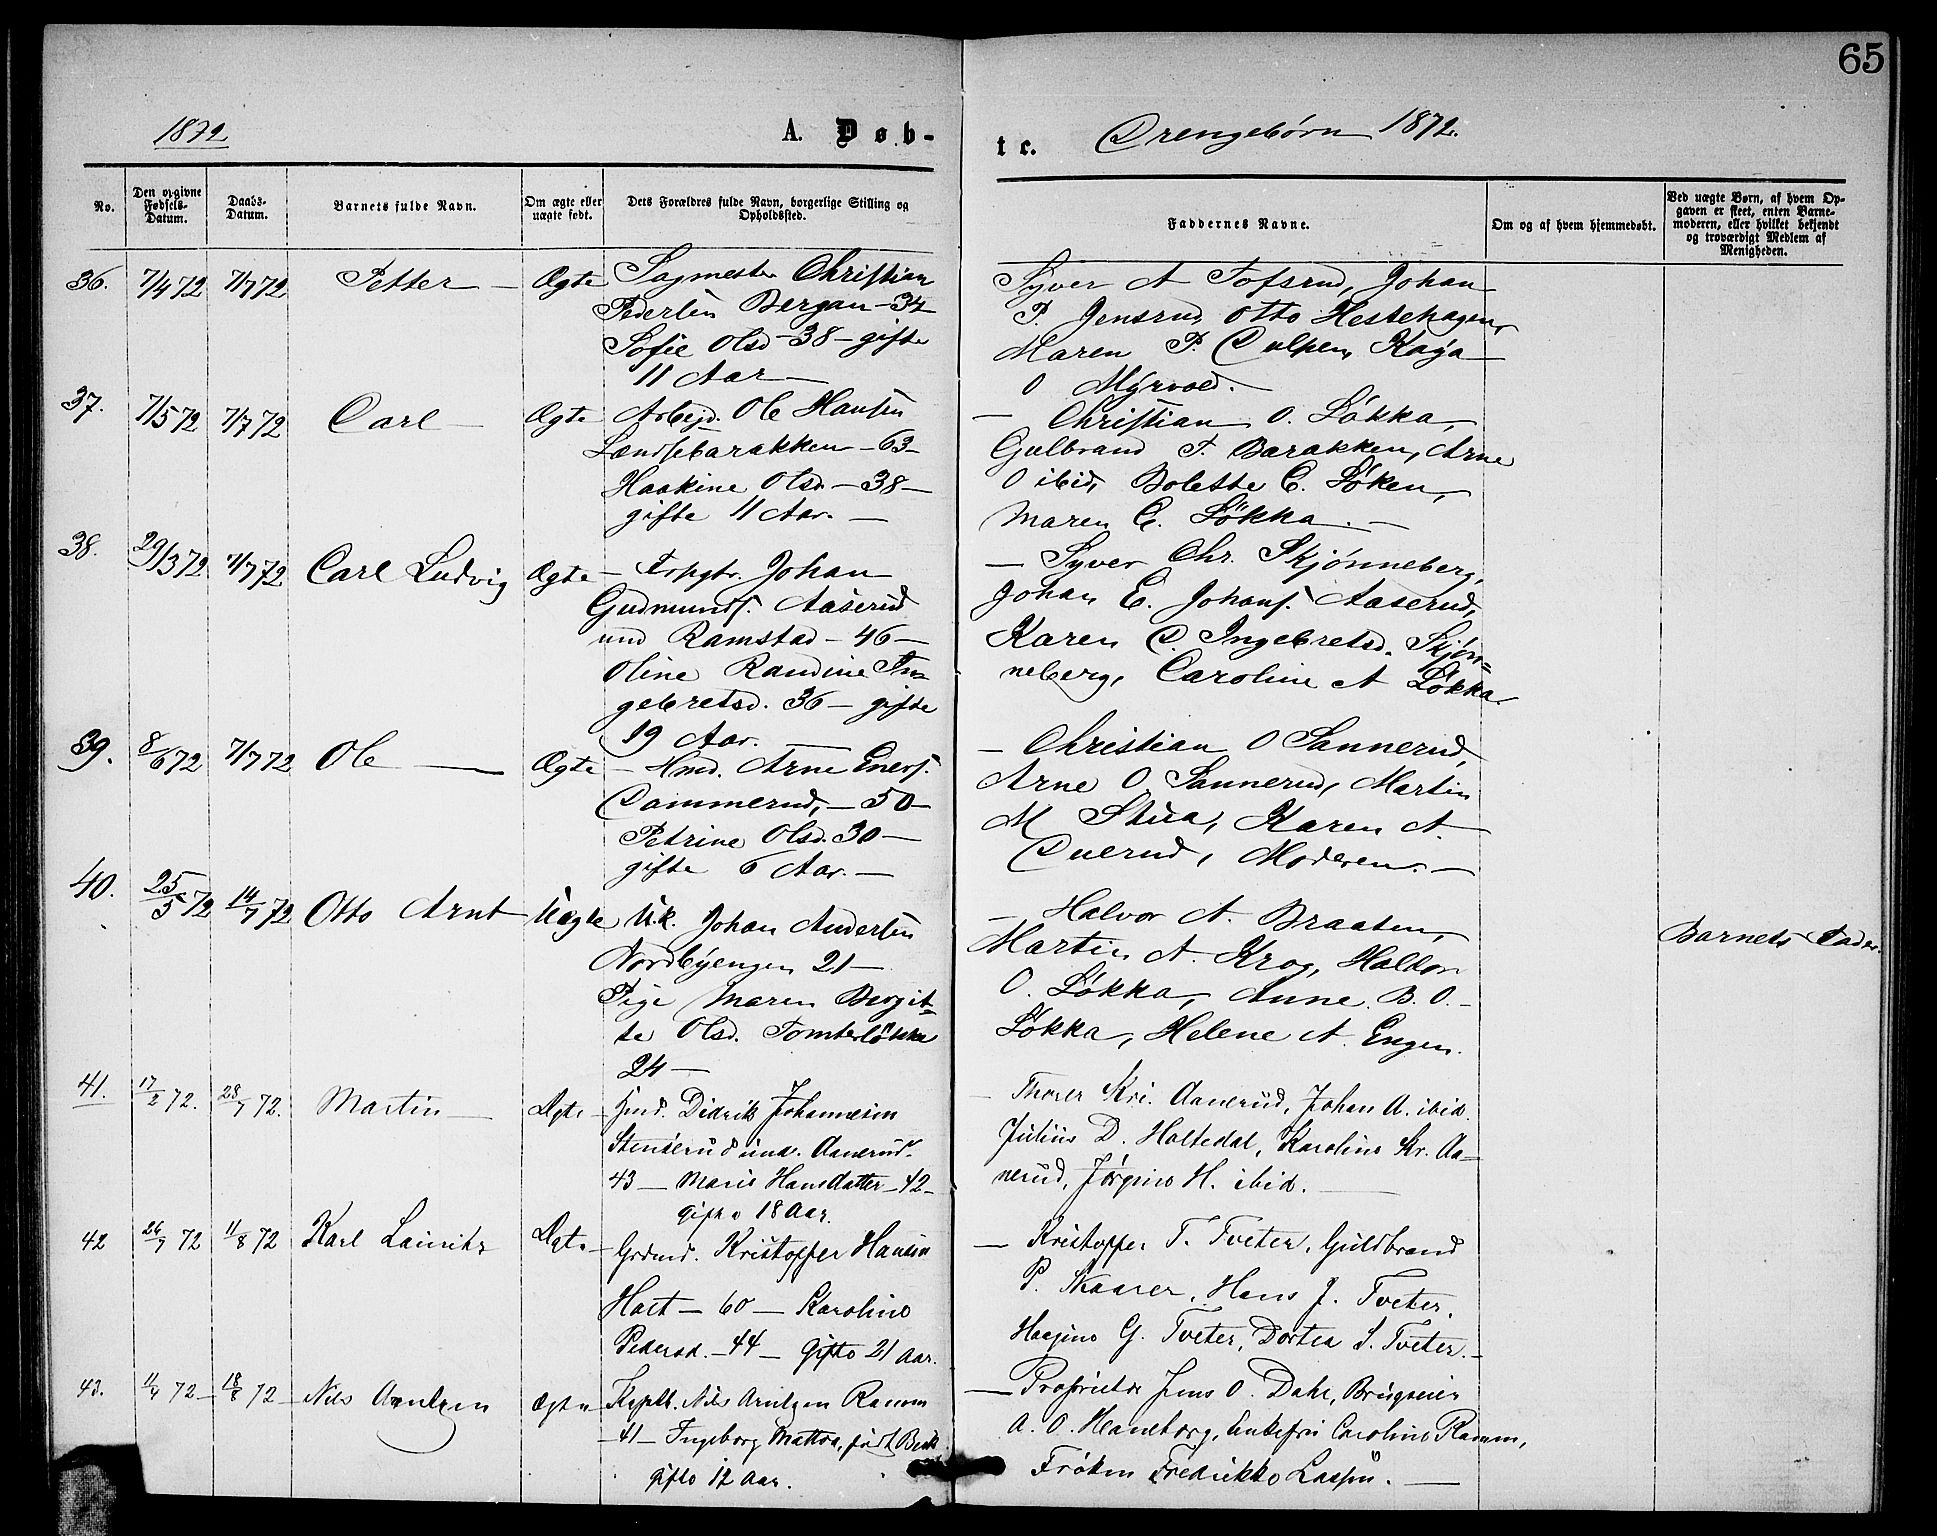 65
1872
A. Døb-
te. Drengebørn 1872.
No.
Den opgivne Fødsels-Datum.
Daabs-Datum.
Barnets fulde Navn.
Om ægte eller uægte født.
Dets Forældres fulde Navn, borgerlige Stilling og Opholdssted.
Faddernes Navne.
Om og af hvem hjemmedøbt.
Ved uægte Børn, af hvem Op-
gaven er skeet, enten Barne-
moderen, eller hvilket bekjendt
og troværdigt Medlem af
Menigheden.
36. 7/4 72 7/7 72 Petter — Ægte Sagmester Christian
Pedersen Bergan — 34
Sofie Olsd — 38 — gifte
11 Aar —
Syver A Tofsrud, Johan
P. Jensrud, Otto Hestehagen,
Maren P. Kaja
O Myrvold. —
37. 7/5 72 7/7 72 Carl — Ægte Arbejd. Ole Hansen
Lændsebarakken — 63 —
Haakine Olsd. — 38 —
gifte 11 Aar. —
— Christian O. Løkka,
Gulbrand T. Barakken, Arne
O ibid, Bolette C. Løken,
Maren C. Løkka. —
38. 29/3 72 7/7 72 Carl Ludvig Ægte — Johan
Gudmunds. Aaserud
und Ramstad — 46 —
Oline Randine In-
gebretsd. 36 — gifte
19 Aar. —
— Syver Chr. Skjønneberg,
Johan E. Johans. Aaserud,
Karen D. Ingebretsd. Skjøn=
neberg, Caroline A Løkka
39. 8/6 72 7/7 72 Ole — Ægte — Hmd. Arne Eners.
Dammerud, — 50 —
Petrine Olsd. 30 —
gifte 6 Aar. —
— Christian O Sannerud,
Arne O Sannerud, Martin
M Stua, Karen A
Duerud, Moderen. —
40. 25/5 72 14/7 72 Otto Arnt Uægte U.k. Johan Andersen
Nordbyengen 21 —
Pige Maren Bergit=
te Olsd. Tomterløkka
24 —
— Halvor A. Braaten,
Martin A. Krog, Haldor
O. Løkka, Anne B. O. —
Løkka, Helene A. Engen.
Barnets Fader.
41. 17/2 72. 28/7 72. Martin — Ægte — Hmd. Didrik Johannesen
Stenserud und. Aanerud.
43 — Marie Hansdatter — 42 —
gifte 18 Aar.
— Thorer Kri. Aanerud, Johan A. ibid.
Julius D. Holtedal, Karoline Kr. Aa-
nerud, Jørgine H. ibid. —
42 26/7 72 11/8 72 Karl Lauritz Ægte — Grdmd. Kristoffer Hansen
Holt — 60 — Karoline
Pedersd. — 44 — gifte 21 Aar.
— Kristoffer T. Tveter, Guldbrand
P. Skaarer, Hans J. Tveter,
G. Tveter, Dortea S. Tveter. —
43. 11/4 72 — 18/8 72 — Nils Arntzen Ægte Nils Arntzen Ramm
— 41 — Ingeborg Mattea, født
gifte 12 Aar.
— Proprietær Jens O. Dahl,
A. O. Haneborg, Enkefru Caroline Ramm,
Frøken Fredrikke Lassen. —